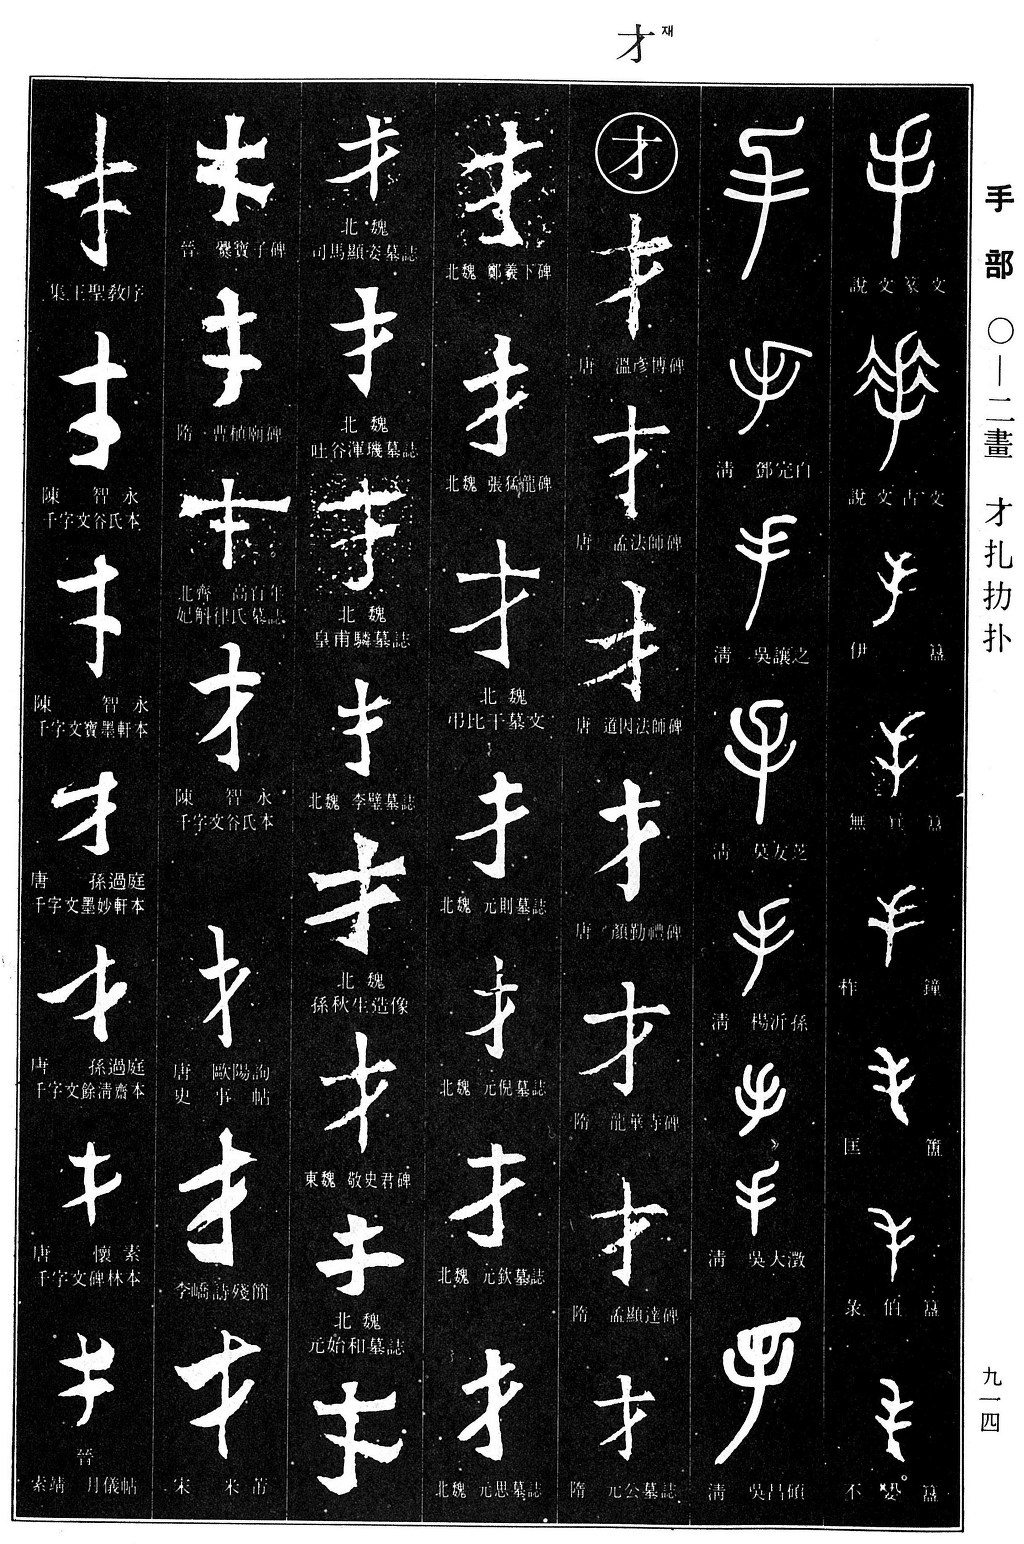 才 재
手部 〇—二畫 才扎扐扑
九一四
說文篆文
說文古文
伊 簋
無㠱簋
柞 鐘
匡 簠
彔伯簋
不簋
清 鄧完白
清 吳讓之
清 莫友芝
清 楊沂孫
清 吳大澂
清 吳昌碩
才
唐 溫彥博碑
唐 孟法師碑
唐 道因法師碑
唐 顏勤禮碑
隋 龍華寺碑
隋 孟顯達碑
隋 元公墓誌
北魏 鄭羲下碑
北魏 張猛龍碑
北魏
弔比干墓文
北魏 元則墓誌
北魏 元倪墓誌
北魏 元欽墓誌
北魏 元思墓誌
北魏
司馬顯姿墓誌
北魏
吐谷渾璣墓誌
北魏
皇甫驎墓誌
北魏 李璧墓誌
北魏
孫秋生造像
東魏 敬史君碑
北魏
元始和墓誌
晉 爨寶子碑
隋 曹植廟碑
北齊 高百年
妃斛律氏墓誌
陳 智永
千字文谷氏本
唐 歐陽詢
史事帖
李嶠詩殘簡
宋 米芾
集王聖教序
陳 智永
千字文谷氏本
陳 智永
千字文寶墨軒本
唐 孫過庭
千字文墨妙軒本
唐 孫過庭
千字文餘清齋本
唐 懷素
千字文碑林本
晉
索靖 月儀帖